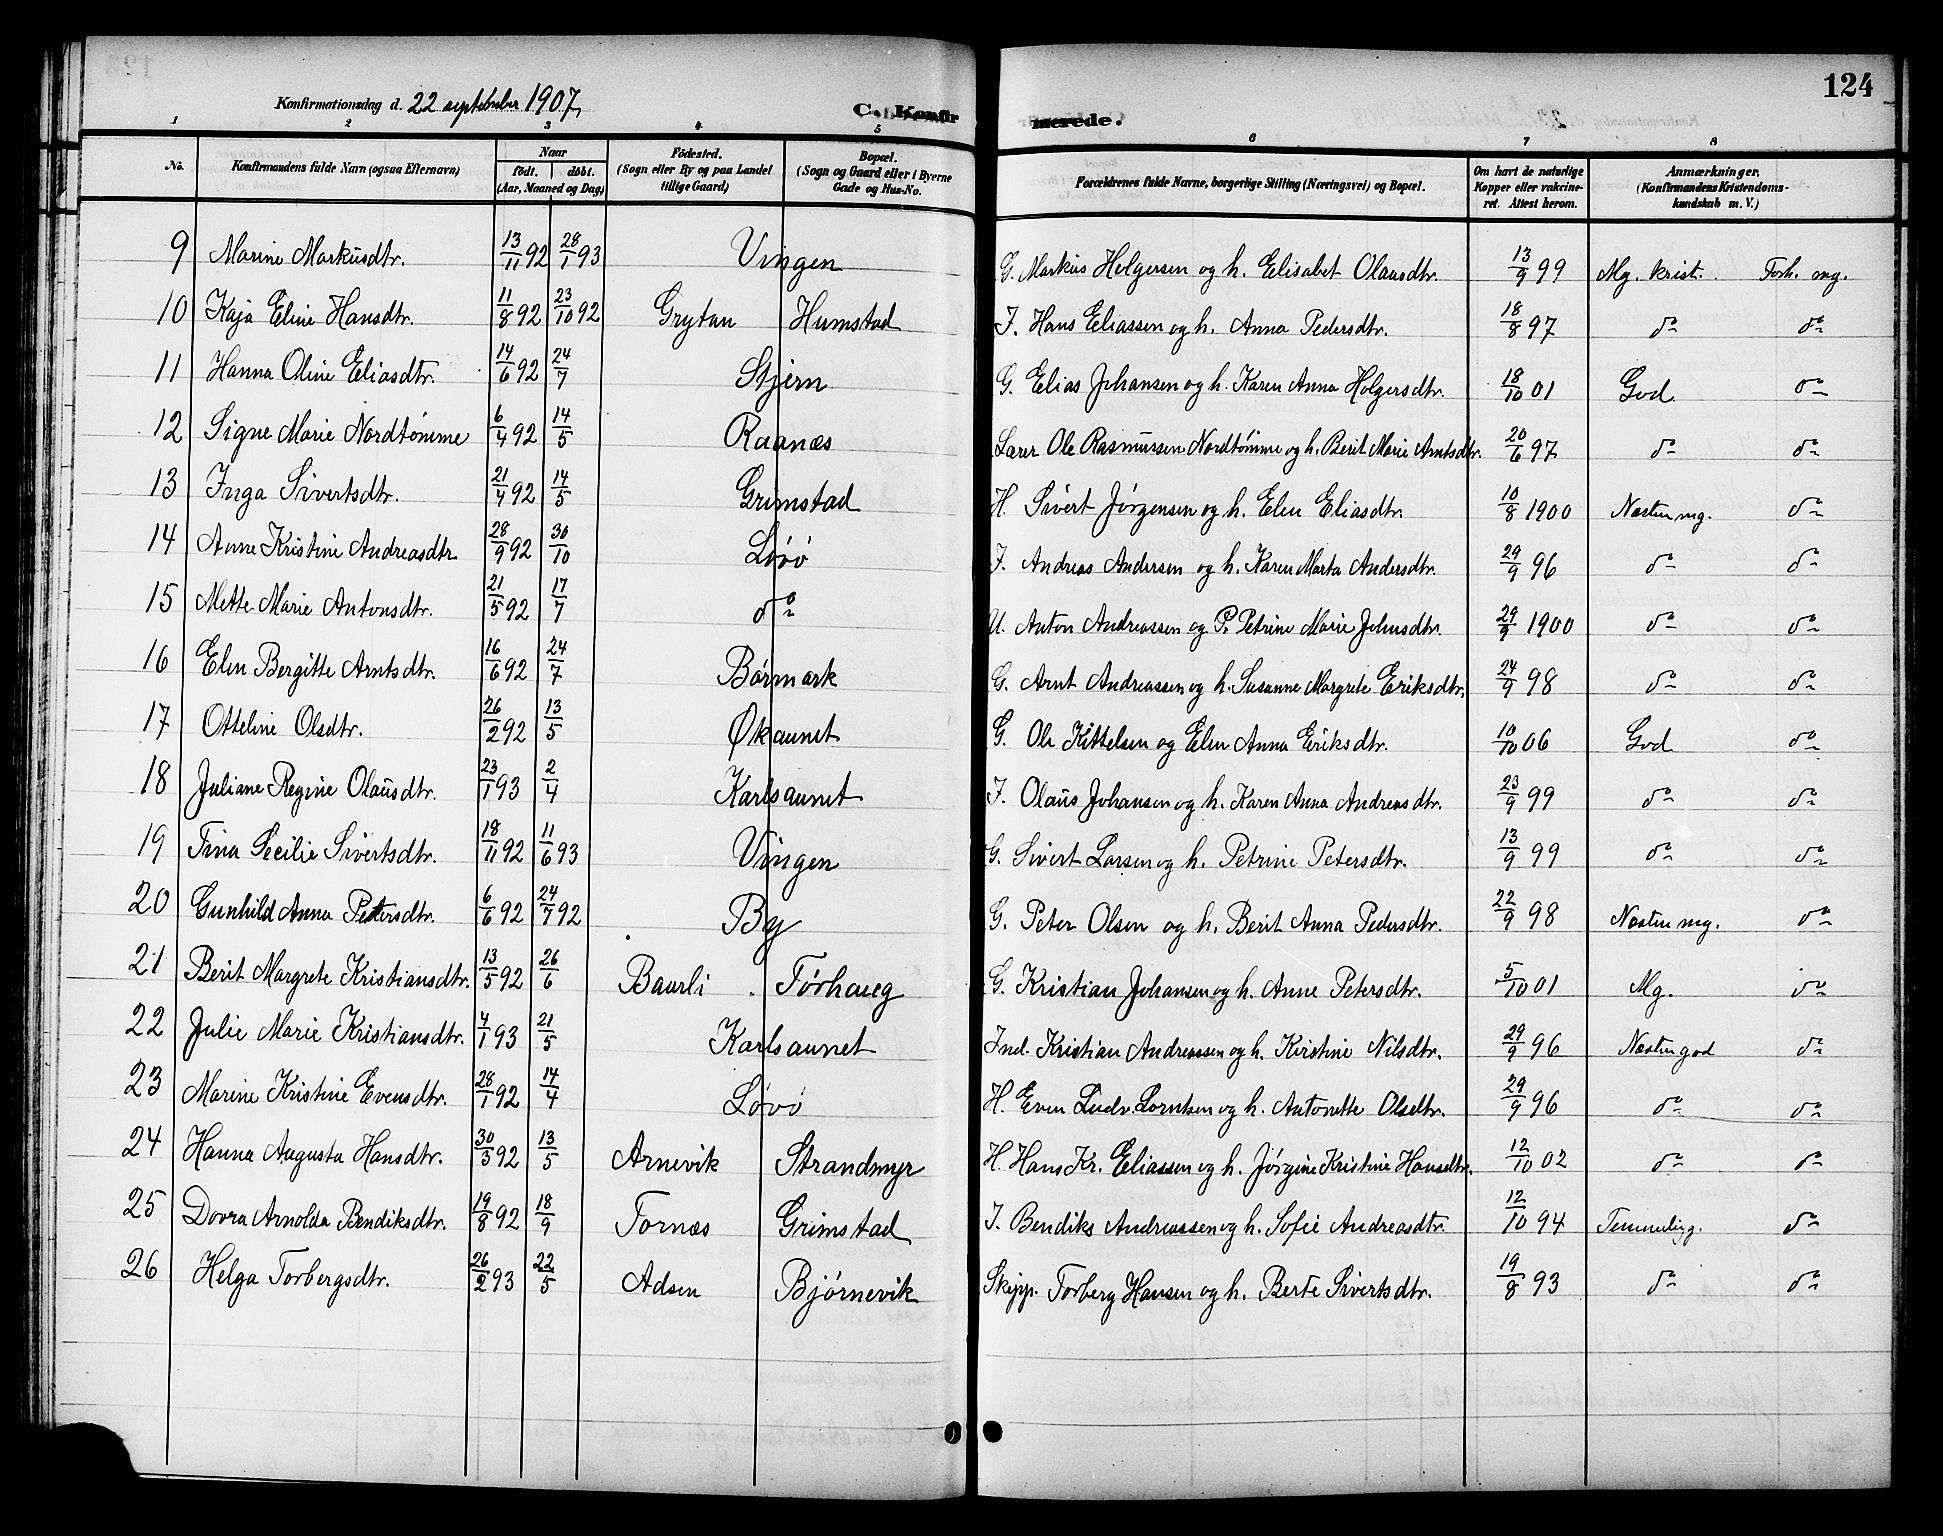 124
Konfirmationsdag d. 22 september 1907,
C. Konfirmerede.
1 2 3 4 5 6 7 8
No. Konfirmandens fulde Navn (ogsaa Efternavn) Naar født. døbt. (Aar, Maaned og Dag) Fødested. (Sogn eller By og paa Landet tillige Gaard) Bopæl. (Sogn og Gaard eller i Byerne Gade og Hus-No. Forældrenes fulde Navne, borgerlige Stilling (Næringsvei) og Bopæl. Om havt de naturlige Kopper eller vakcineret. Attest herom. Anmærkninger. (Konfirmandens Kristendomskundskab m. V.)
9 Marine Markusdtr. 13/11 92 28/1 93 Vingen G. Markus Holgersen og h. Elisabet Olausdtr. 13/9 99 Mg. krist. Forh. mg.
10 Kaja Eline Hansdtr. 11/8 92 23/10 92 Grytan Humstad I. Hans Eliassen og h. Anna Pedersdtr. 18/8 97 do do
11 Hanna Oline Eliasdtr. 14/6 92 24/7 Stjern G. Elias Johansen og h. Karen Anna Holgersdtr. 18/10 01 God do
12 Signe Marie Nordtømme 6/4 92 14/5 Raanæs Lærer Ole Rasmussen Nordtømme og h. Berit Marie Arntsdtr. 20/6 97 do do
13 Inga Sivertsdtr. 21/4 92 14/5 Grimstad H. Sivert Jørgensen og h. Elen Eliasdtr. 10/8 1900 Næsten mg. do
14 Anne Kristine Andreasdtr. 28/9 92 30/10 Løvø I. Andreas Andersen og h. Karen Marta Andersdtr. 29/9 96 do do
15 Mette Marie Antonsdtr. 21/5 92 17/7 do U. Anton Andreassen og P. Petrine Marie Johnsdtr. 29/9 1900 do do
16 Elen Bergitte Arntsdtr. 16/6 92 24/7 Børmark G. Arnt Andreassen og h. Susanne Margrete Eriksdtr. 24/9 98 do do
17 Otteline Olsdtr. 26/2 92 13/5 Økaunet G. Ole Kittelsen og Elen Anna Eriksdtr. 10/10 06 God do
18 Juliane Regine Olausdtr. 23/1 93 2/4 Karlsaunet I. Olaus Johansen og h. Karen Anna Andreasdtr. 23/9 99 do do
19 Tina Secilie Sivertsdtr. 18/11 92 11/6 93 Vingen G. Sivert Larsen og h. Petrine Petersdtr. 13/9 99 do do
20 Gunhild Anna Petersdtr. 6/6 92 24/7 92 By G. Peter Olsen og h. Berit Anna Pedersdtr. 22/9 98 Næsten mg. do
21 Berit Margrete Kristiansdtr. 13/5 92 26/6 Baurli Førhaug G. Kristian Johansen og h. Anne Petersdtr. 5/10 01 Mg. do
22 Julie Marie Kristiansdtr. 4/1 93 21/5 Karlsaunet Ind. Kristian Andreassen og h. Kirstine Nilsdtr. 29/9 96 Næsten god do
23 Marine Kristine Evensdtr. 28/1 92 14/4 Løvø H. Even Ludv. Lorntsen og h. Antonette Olsdtr. 29/9 96 do do
24 Hanna Augusta Hansdtr. 30/3 92 13/5 Arnevik Strandmyr H. Hans Kr. Eliassen og h. Jørgine Kristine Hansdtr. 12/10 02 do do
25 Dovra Arnolda Bendiksdtr. 19/8 92 18/9 Tornæs Grimstad I. Bendiks Andreassen og h. Sofie Andreasdtr. 12/10 94 Temmelig g. do
26 Helga Torbergsdtr. 26/2 93 22/5 Adsen Bjørnevik Skipp. Torberg Hansen og h. Berte Sivertsdtr. 19/8 93 do do